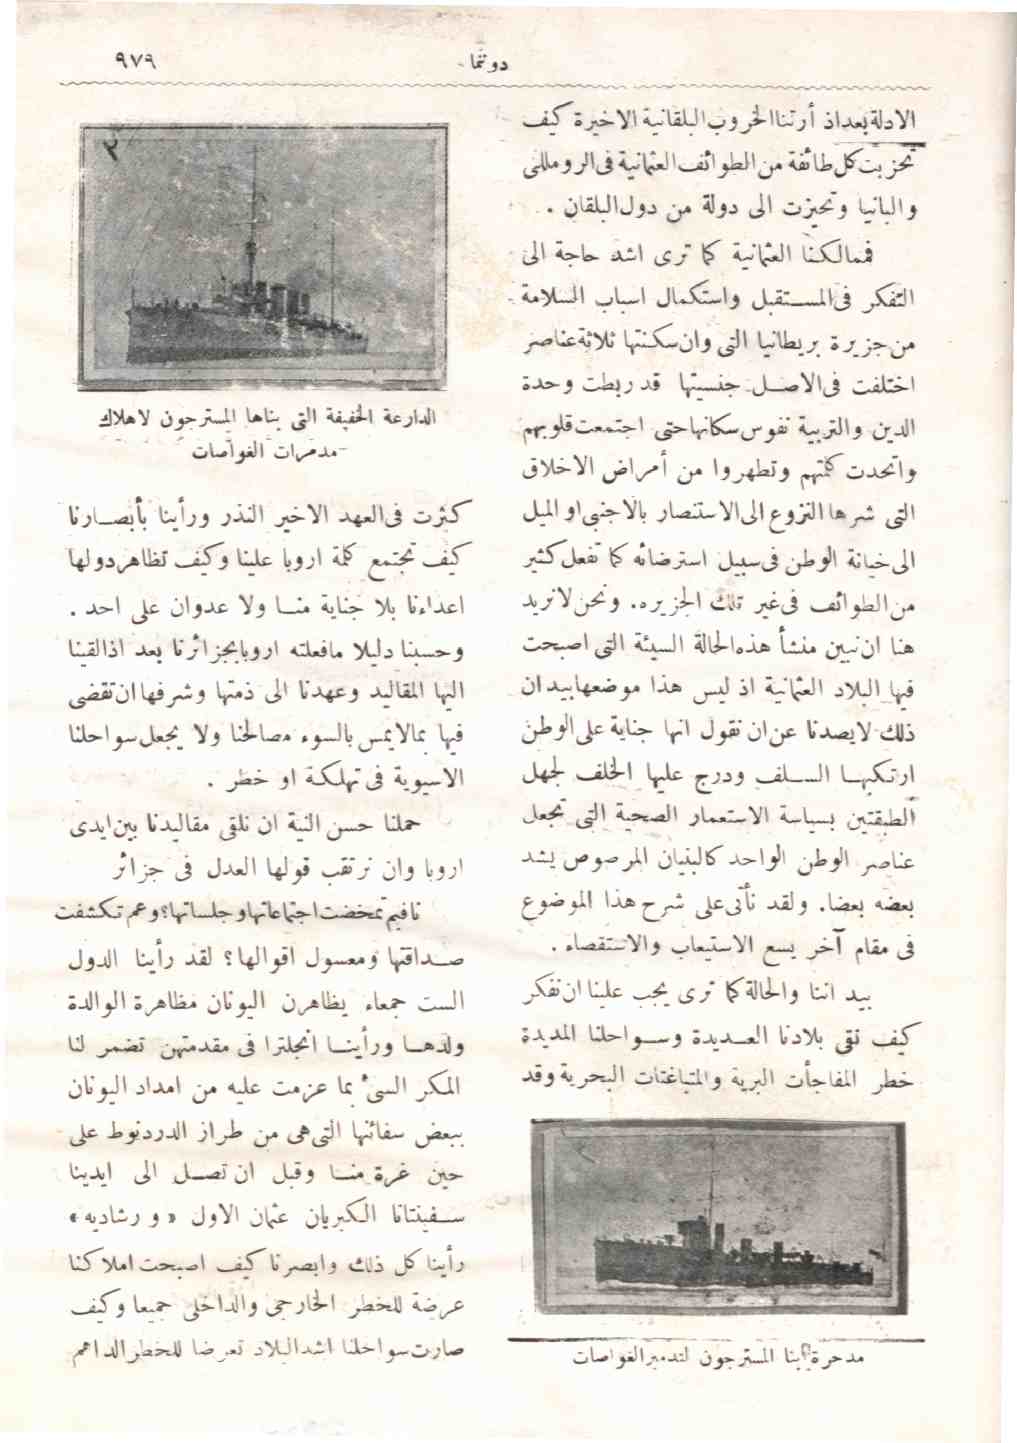 دوننما
٩٧٩
الادلة بعد اذ أرتنا الحروب البلقانية الاخيرة كيف
تحزبت كل طائفة من الطوائف العثمانية فى الرومللى
والبانيا وتحيزت الى دولة من دول البلقان .
فممالكنا العثمانية كما ترى اشد حاجة الى
التفكر فى المستقبل واستكمال اسباب السلامة
من جزيرة بريطانيا التى وان سكنتها ثلاثة عناصر
اختلفت فى الاصل جنسيتها قد ربطت وحدة
الدين والتربية نفوس سكانها حتى اجتمعت قلوبهم
واتحدت كلتهم وتطهروا من أمراض الاخلاق
التى شرها النزوع الى الاستنصار بالاجنبى او الميل
الى خيانة الوطن فى سبيل استرضائه كما تفعل كثير
من الطوائف فى غير تلك الجزيره. ونحن لا نريد
هنا ان نبين منشأ هذه الحالة السيئة التى اصبحت
فيها البلاد العثمانية اذ ليس هذا موضعها بيد ان
ذلك لايصدنا عن ان نقول انها جناية على الوطن
ارتكبها السلف ودرج عليها الخلف لجهل
الطبقتين بسياسة الاستعمار الصحية التى تجعل
عناصر الوطن الواحد كالبنيان المرصوص يشد
بعضه بعضا. ولقد نأتى على شرح هذا الموضوع
فى مقام آخر يسع الاستيعاب والاستقصاء .
بيد اننا والحالة كما ترى يجب علينا ان نفكر
كيف نقى بلادنا العديدة وسواحلنا المديدة
خطر المفاجأت البرية والمتباغتات البحرية وقد
مدحرة بنا المسترجون لتدمير الغواصات
٣
الدارعة الخفيفة التى بناها المسترجون لاهلاك
مدمرات الغواصات
كثرت فى العهد الاخير النذر ورأينا بأبصارنا
كيف تجتمع كلمة اروبا علينا وكيف تظاهر دولها
اعداءنا بلا جناية منا ولا عدوان على احد .
وحسبنا دليلا مافعلته اروبا بجزائرنا بعد اذ القينا
اليها المقاليد وعهدنا الى ذمتها وشرفها ان تقضى
فيها بمالايمس بالسوء مصالحنا ولا يجعل سواحلنا
الاسيوية فى تهلكة او خطر .
حملنا حسن النية ان نلقى مقاليدنا بين ايدى
اروبا وان نرتقب قولها العدل فى جزائر
نا فبم تمخضت اجتماعاتها وجلساتها؟ وعم تكشفت
صداقتها ومعسول اقوالها؟ لقد رأينا الدول
الست جمعاء يظاهرن اليونان مظاهرة الوالدة
ولدها ورأينا انجلترا فى مقدمتهن تضمر لنا
المكر السئ بما عزمت عليه من امداد اليونان
ببعض سفائنها التى هى من طراز الدردنوط على
حين غرة منا وقبل ان تصل الى ايدينا
سفينتانا الكبريان عثمان الاول « و رشاديه »
رأينا كل ذلك وابصرنا كيف اصبحت املاكنا
عرضة للخطر الخارجى والداخلى جميعا وكيف
صارت سواحلنا اشد البلاد تعرضا للخطر الداهم